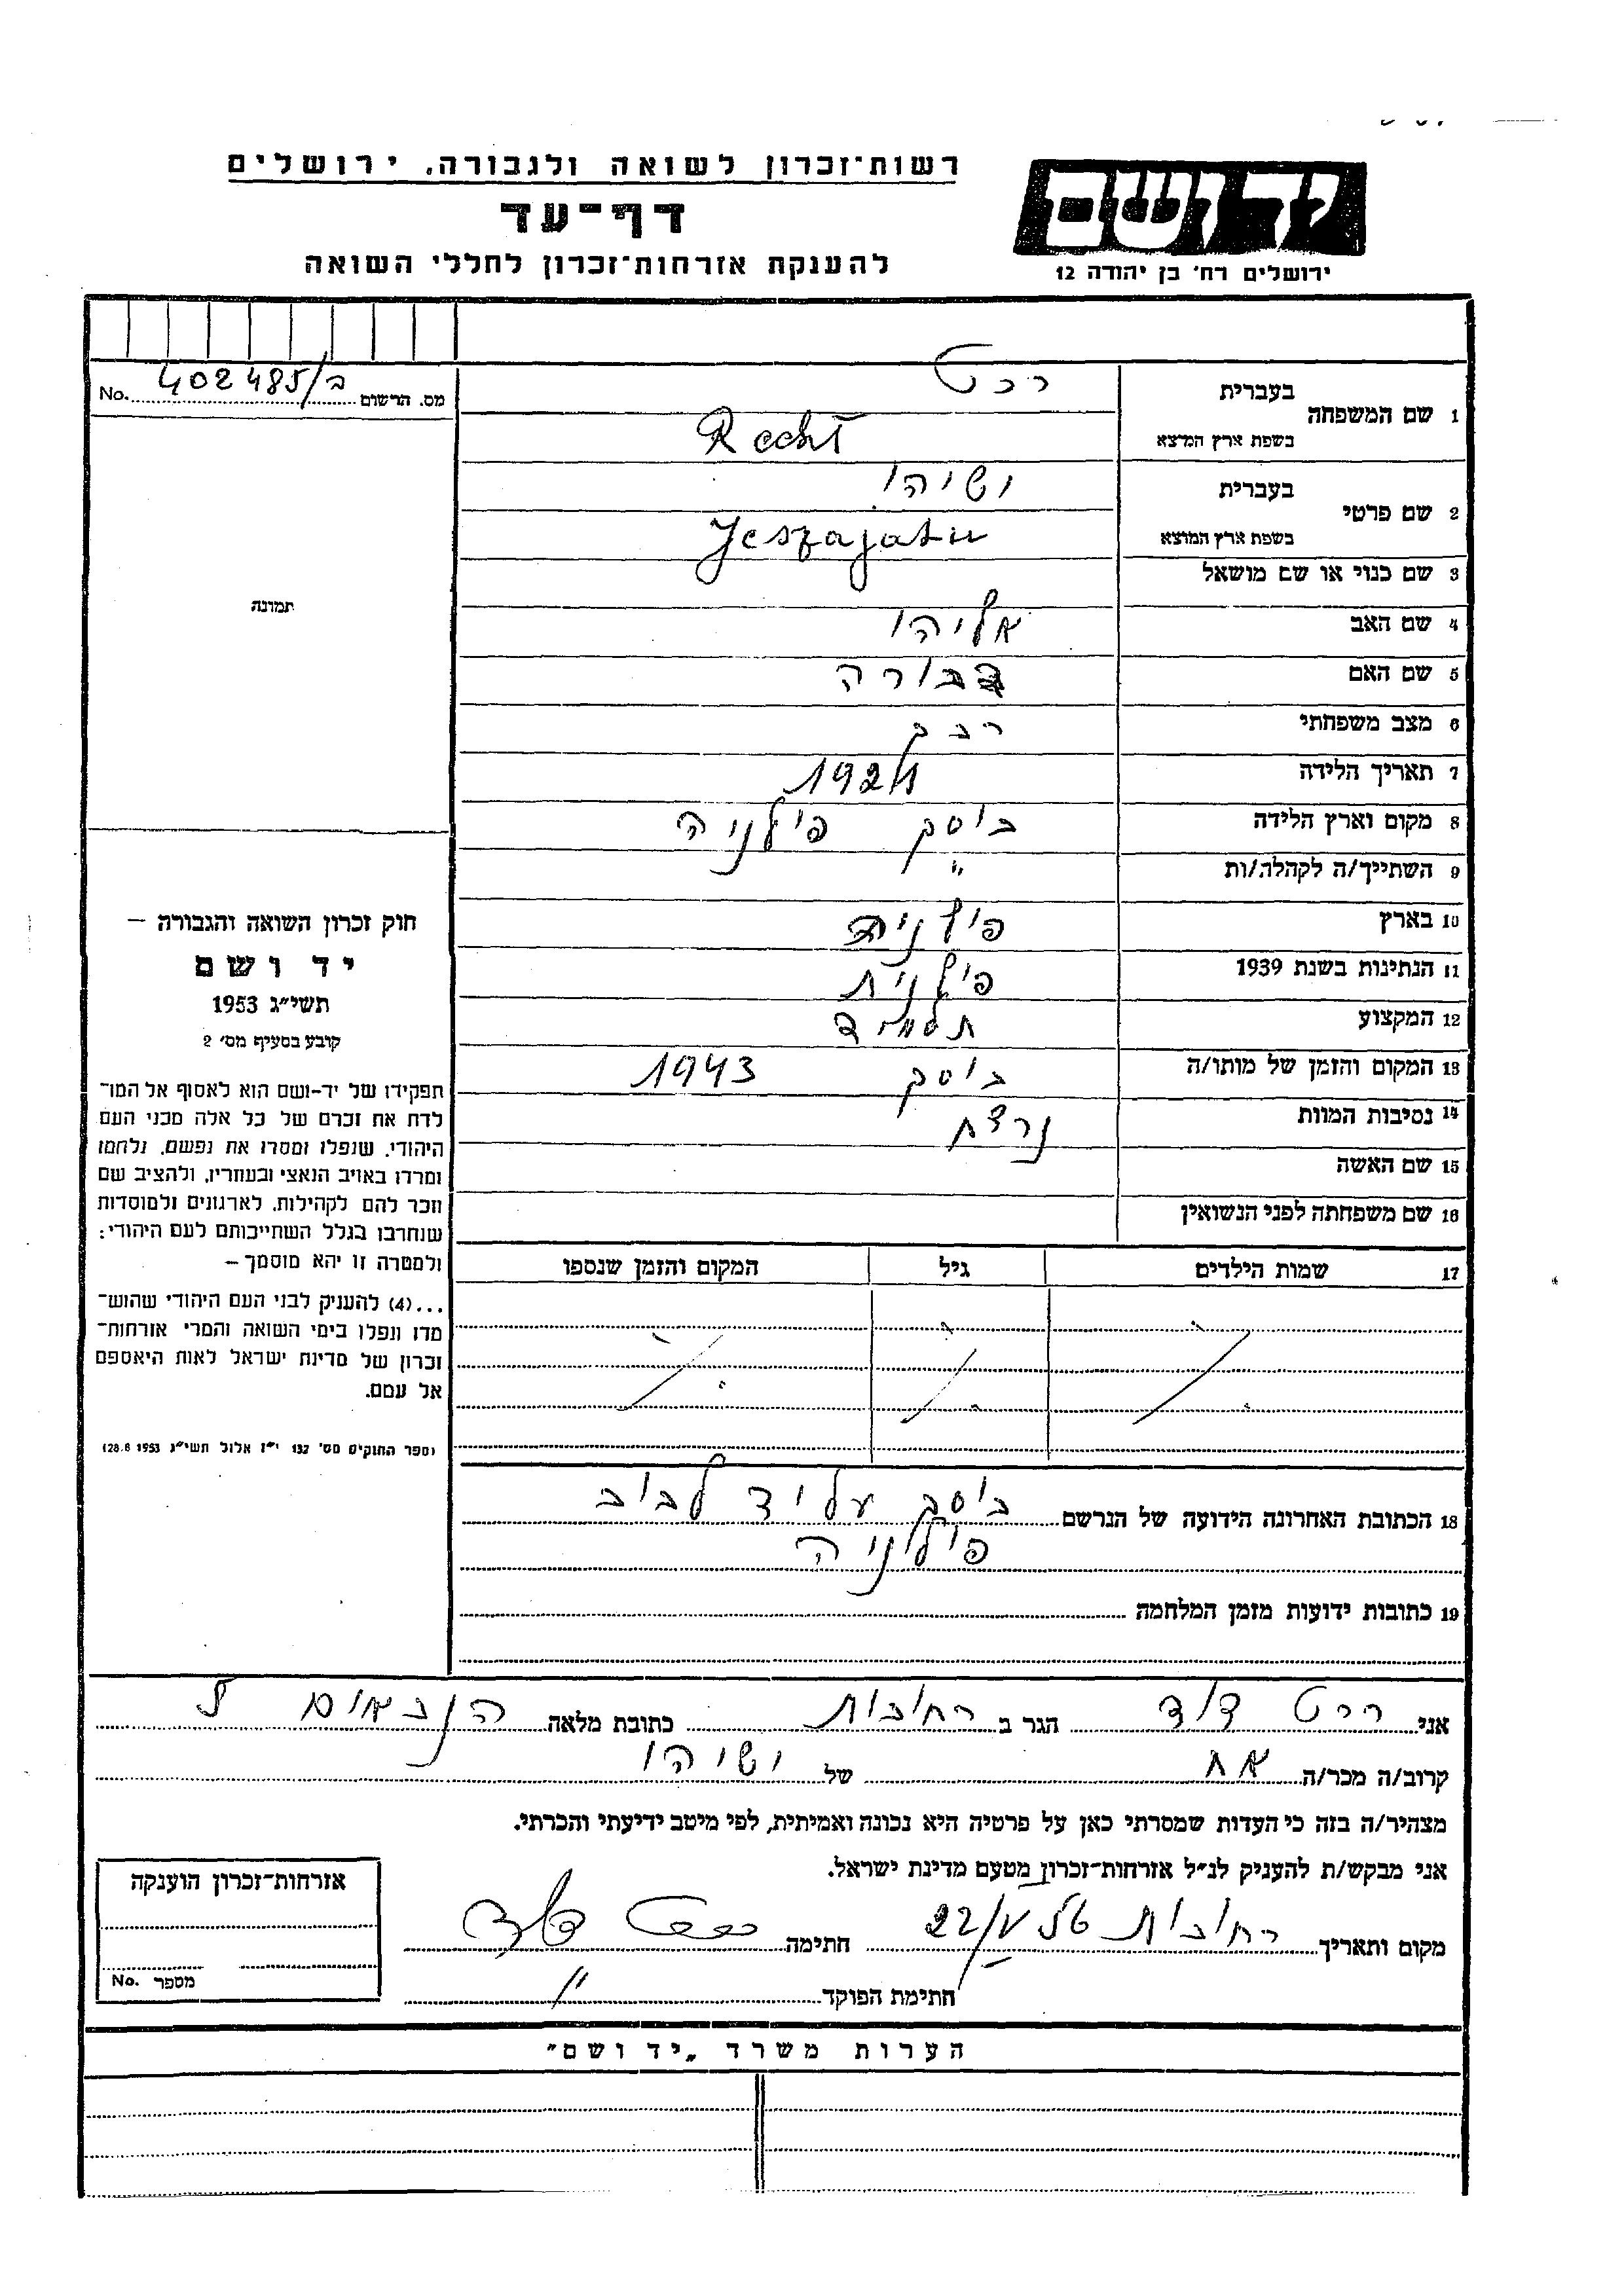 רשות־זכרון לשואה ולגבורה, ירושלים
דף־עד
להענקת אזרחות־זכרון לחללי השואה
יד ושם
ירושלים רח' בן יהודה 12
מס. הרשום ב/402485 No.
1 שם המשפחה בעברית רכט
בשפת ארץ המוצא Recht
2 שם פרטי בעברית ישיהו
בשפת ארץ המוצא Jeszajahu
3 שם כנוי או שם מושאל
4 שם האב אליהו
5 שם האם דבורה
6 מצב משפחתי רווק
7 תאריך הלידה
8 מקום וארץ הלידה בוסק פולניה
9 השתייך/ה לקהלה/ות "
10 בארץ פולניה
11 הנתינות בשנת 1939 פולנית
12 המקצוע תלמיד
13 המקום והזמן של מותו/ה בוסק 1943
14 נסיבות המוות נרצח
15 שם האשה
16 שם משפחתה לפני הנשואין
17 שמות הילדים גיל המקום והזמן שנספו
18 הכתובת האחרונה הידועה של הנרשם בוסק על יד לבוב
פולניה
19 כתובות ידועות מזמן המלחמה
תמונה
חוק זכרון השואה והגבורה –
יד ושם
תשי"ג 1953
קובע בסעיף מס' 2
תפקידו של יד-ושם הוא לאסוף אל המו־
לדת את זכרם של כל אלה מבני העם
היהודי, שנפלו ומסרו את נפשם, נלחמו
ומרדו באויב הנאצי ובעוזריו, ולהציב שם
וזכר להם לקהילות, לארגונים ולמוסדות
שנחרבו בגלל השתייכותם לעם היהודי;
ולמטרה זו יהא מוסמך –
...(4) להעניק לבני העם היהודי שהוש־
מדו ונפלו בימי השואה והמרי אזרחות־
זכרון של מדינת ישראל לאות היאספם
אל עמם.
(ספר החוקים מס' 132 י"ז אלול תשי"ג 28.8.1953)
אני רכט דוד הגר ב רחובות כתובת מלאה הנביאים 5
קרוב/ה מכר/ה אח של ישיהו
מצהיר/ה בזה כי העדות שמסרתי כאן על פרטיה היא נכונה ואמיתית, לפי מיטב ידיעתי והכרתי.
אני מבקש/ת להעניק לנ"ל אזרחות־זכרון מטעם מדינת ישראל.
מקום ותאריך רחובות חתימה רכט דוד
חתימת הפוקד
אזרחות־זכרון הוענקה
מספר No.
הערות משרד „יד ושם"